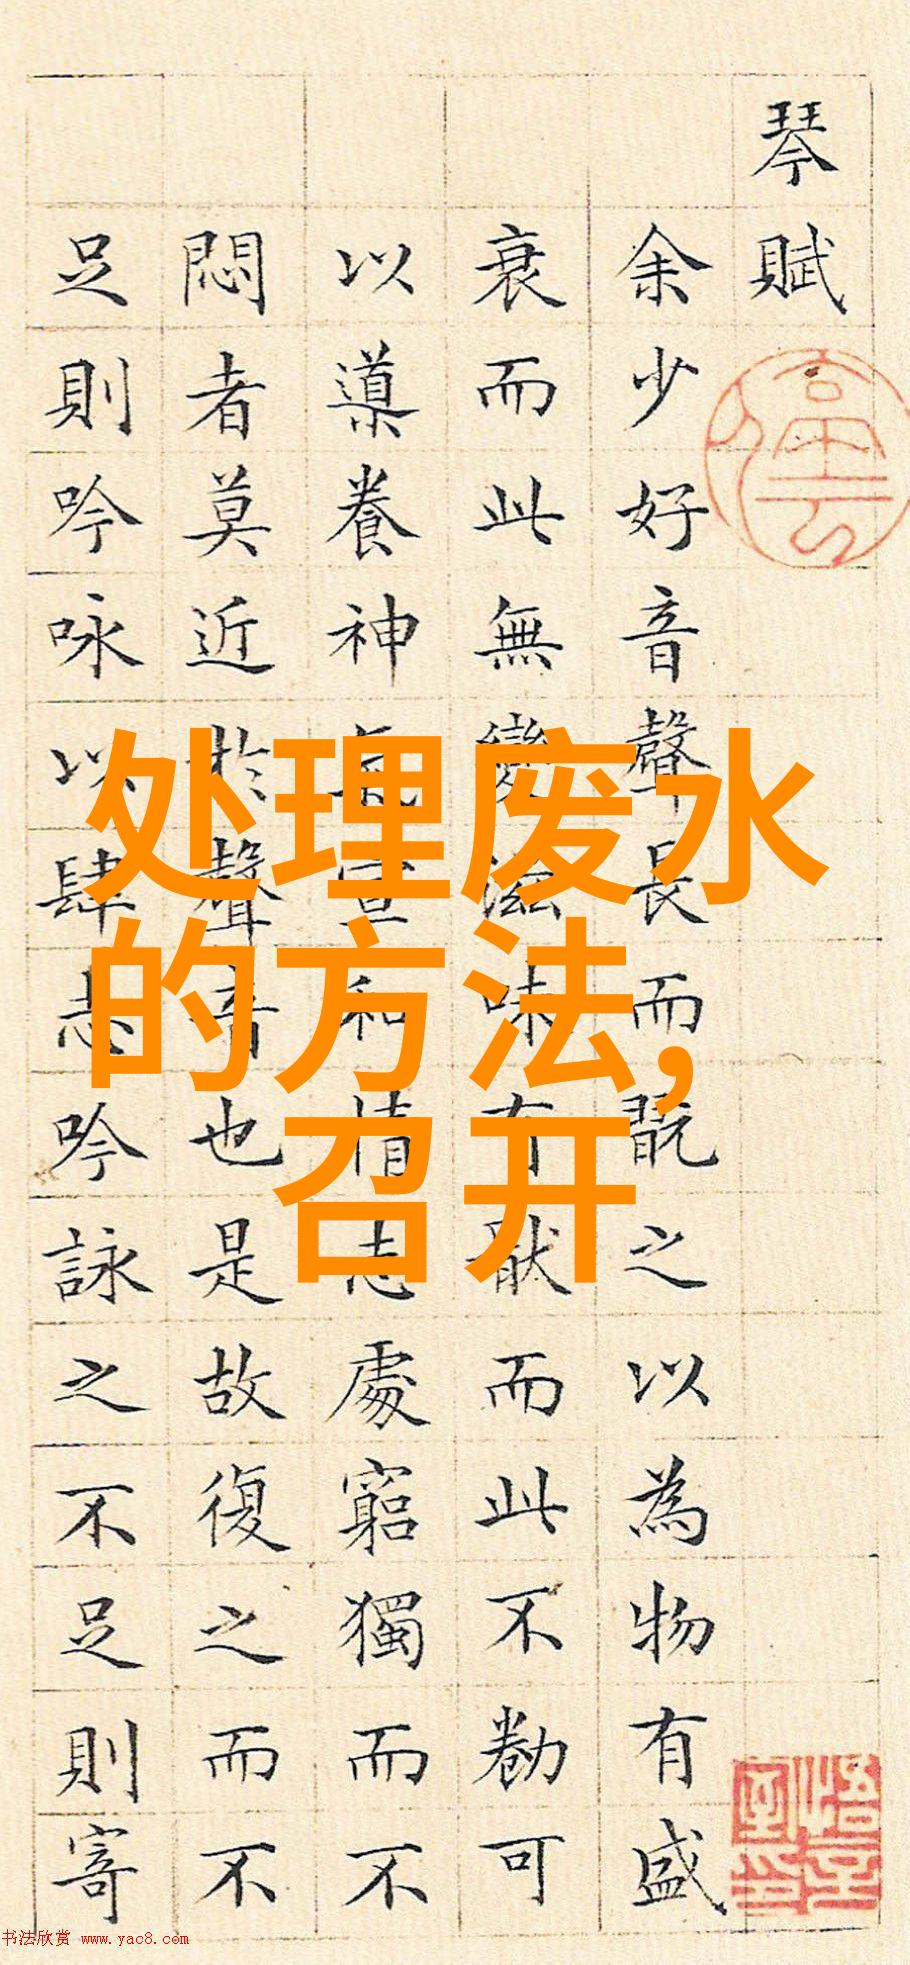 琴賦
余少好音聲長而翫之以為物有盛
衰而此無變滋味有猒而此不勌可
以導養神氣宣和情志處窮獨而不
悶者莫近於聲音也是故復之而不
足則吟咏以肆志吟詠之不足則寄
处理废水
的方法，
召开
书法欣赏 www.yac8.com